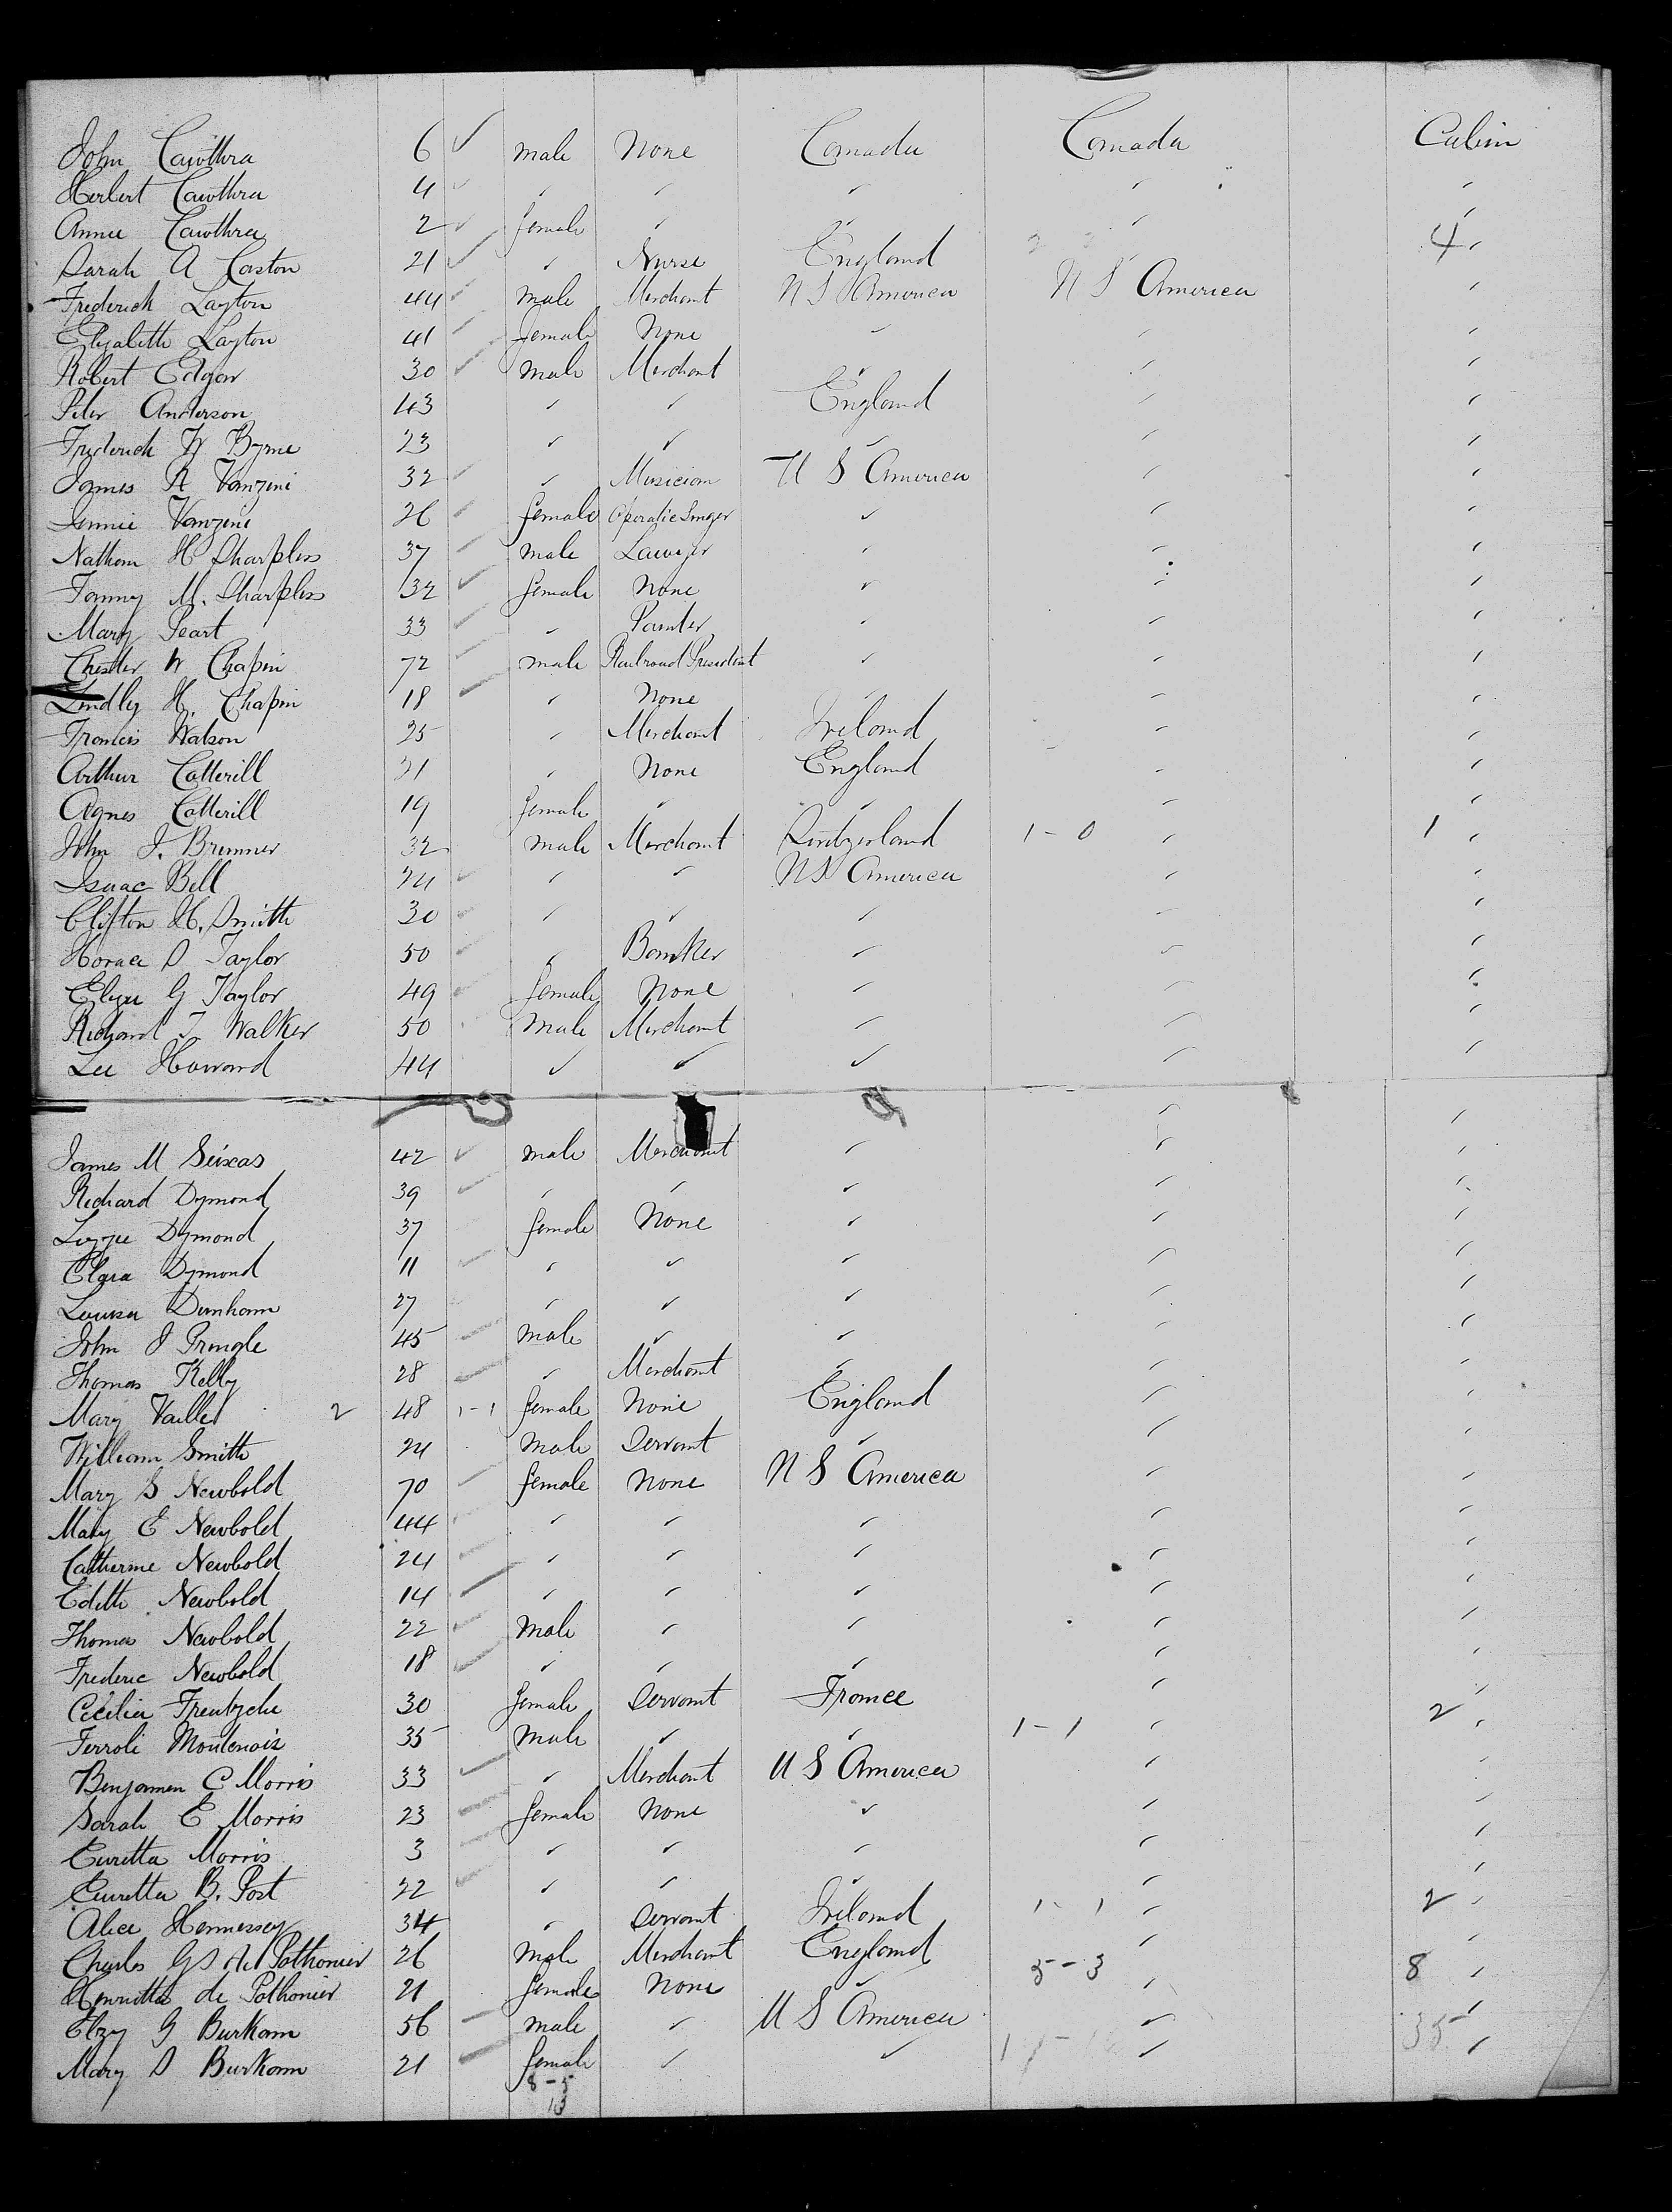 John Cawthra 6 ✓ male None Canada Canada Cabin
Herbert Cawthra 4 ✓ " " " " "
Annie Cawthra 2 ✓ female " " " "
Sarah A Caston 21 ✓ " Nurse England " 4 "
Frederick Layton 44 ✓ male Merchant U S America U S America "
Elizabeth Layton 41 ✓ female None " " "
Robert Edgar 30 ✓ male Merchant " " "
Peter Anderson 43 " " England " "
Frederick W Byrne 23 " " " " "
James A Vanzini 32 ✓ " Musician U S America " "
Jennie Vanzini 26 ✓ female Operatic Singer " " "
Nathan H Sharpless 37 ✓ male Lawyer " " "
Fanny M. Sharpless 32 ✓ female None " " "
Mary Peart 33 ✓ " Painter " " "
Chester W Chapin 72 ✓ male Railroad President " " "
Lindley H. Chapin 18 ✓ " None " " "
Francis Watson 25 " Merchant Ireland " "
Arthur Catterill 21 " None England " "
Agnes Catterill 19 female " " " "
John J. Brunner 32 male Merchant Switzerland 1-0 " 1 "
Isaac Bell 24 ✓ " " U S America " "
Clifton H. Smith 30 ✓ " " " " "
Horace S Taylor 50 ✓ " Banker " " "
Eliza G Taylor 49 ✓ female None " " "
Richard T. Walker 50 male Merchant " " "
Lee Howard 44 " " " " "
James M Seixas 42 ✓ male Merchant " " "
Richard Dymond 39 ✓ " " " " "
Lizzie Dymond 37 female None " " "
Clara Dymond 11 ✓ " " " " "
Louisa Dunham 27 " " " " "
John J Pringle 45 ✓ male " " " "
Thomas Kelly 28 ✓ " Merchant " " "
Mary Vaillet 2 48 1-1 female None England " "
William Smith 24 male Servant " " "
Mary S Newbold 70 ✓ female None U S America " "
Mary E Newbold 44 ✓ " " " " "
Catherine Newbold 24 ✓ " " " " "
Edith Newbold 14 ✓ " " " " "
Thomas Newbold 22 ✓ Male " " " "
Frederic Newbold 18 ✓ " " " " "
Cecilia Frentzche 30 female Servant France " "
Ferroli Montenois 35 Male " " 1-1 " 2 "
Benjamin C Morris 33 ✓ " Merchant U S America " "
Sarah E Morris 23 ✓ female None " " "
Euretta Morris 3 ✓ " " " " "
Euretta B. Post 22 ✓ " " " " "
Alice Hennessey 34 " Servant Ireland 1-1 " 2 "
Charles G S de Pothonier 26 Male Merchant England 5-3 " 8 "
Henrietta de Pothonier 21 female None " " "
Elzy G Burkam 56 ✓ male " U S America " 35 "
Mary S Burkam 21 ✓ female " " " "
8-5
13